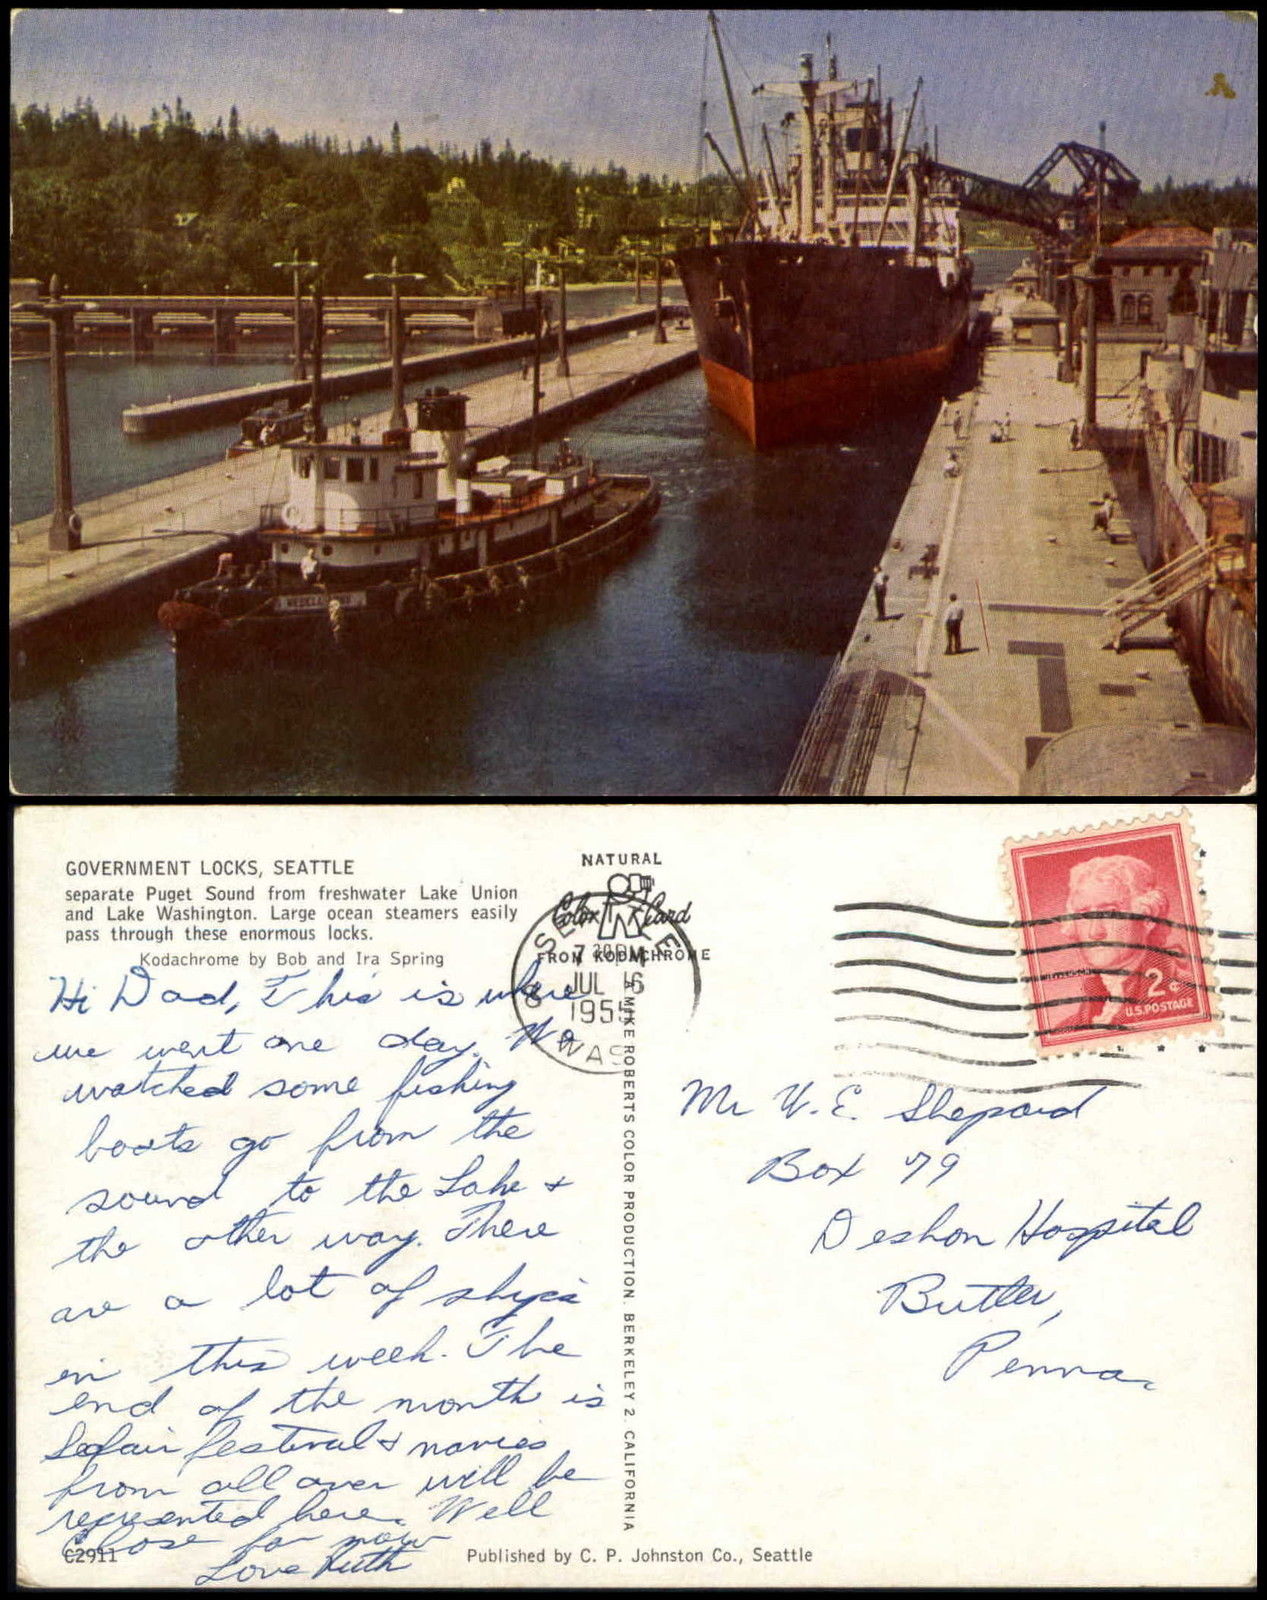 GOVERNMENT LOCKS, SEATTLE
separate Puget Sound from freshwater Lake Union
and Lake Washington. Large ocean steamers easily
pass through these enormous locks.
Kodachrome by Bob and Ira Spring
Hi Dad, This is where
we went one day. We
watched some fishing
boats go from the
sound to the Lake +
the other way. There
are a lot of ships
in this week. The
end of the month is
Seafair festival + navies
from all over will be
represented here. Well
Close for now
Love Ruth
C2911
NATURAL
Color Card
FROM KODACHROME
SEATTLE
JUL 6
WASH
A MIKE ROBERTS COLOR PRODUCTION. BERKELEY 2. CALIFORNIA
JEFFERSON
2¢
U.S. POSTAGE
Mr W. E. Shepard
Box 79
Deshon Hospital
Butler,
Penna.
Published by C. P. Johnston Co., Seattle